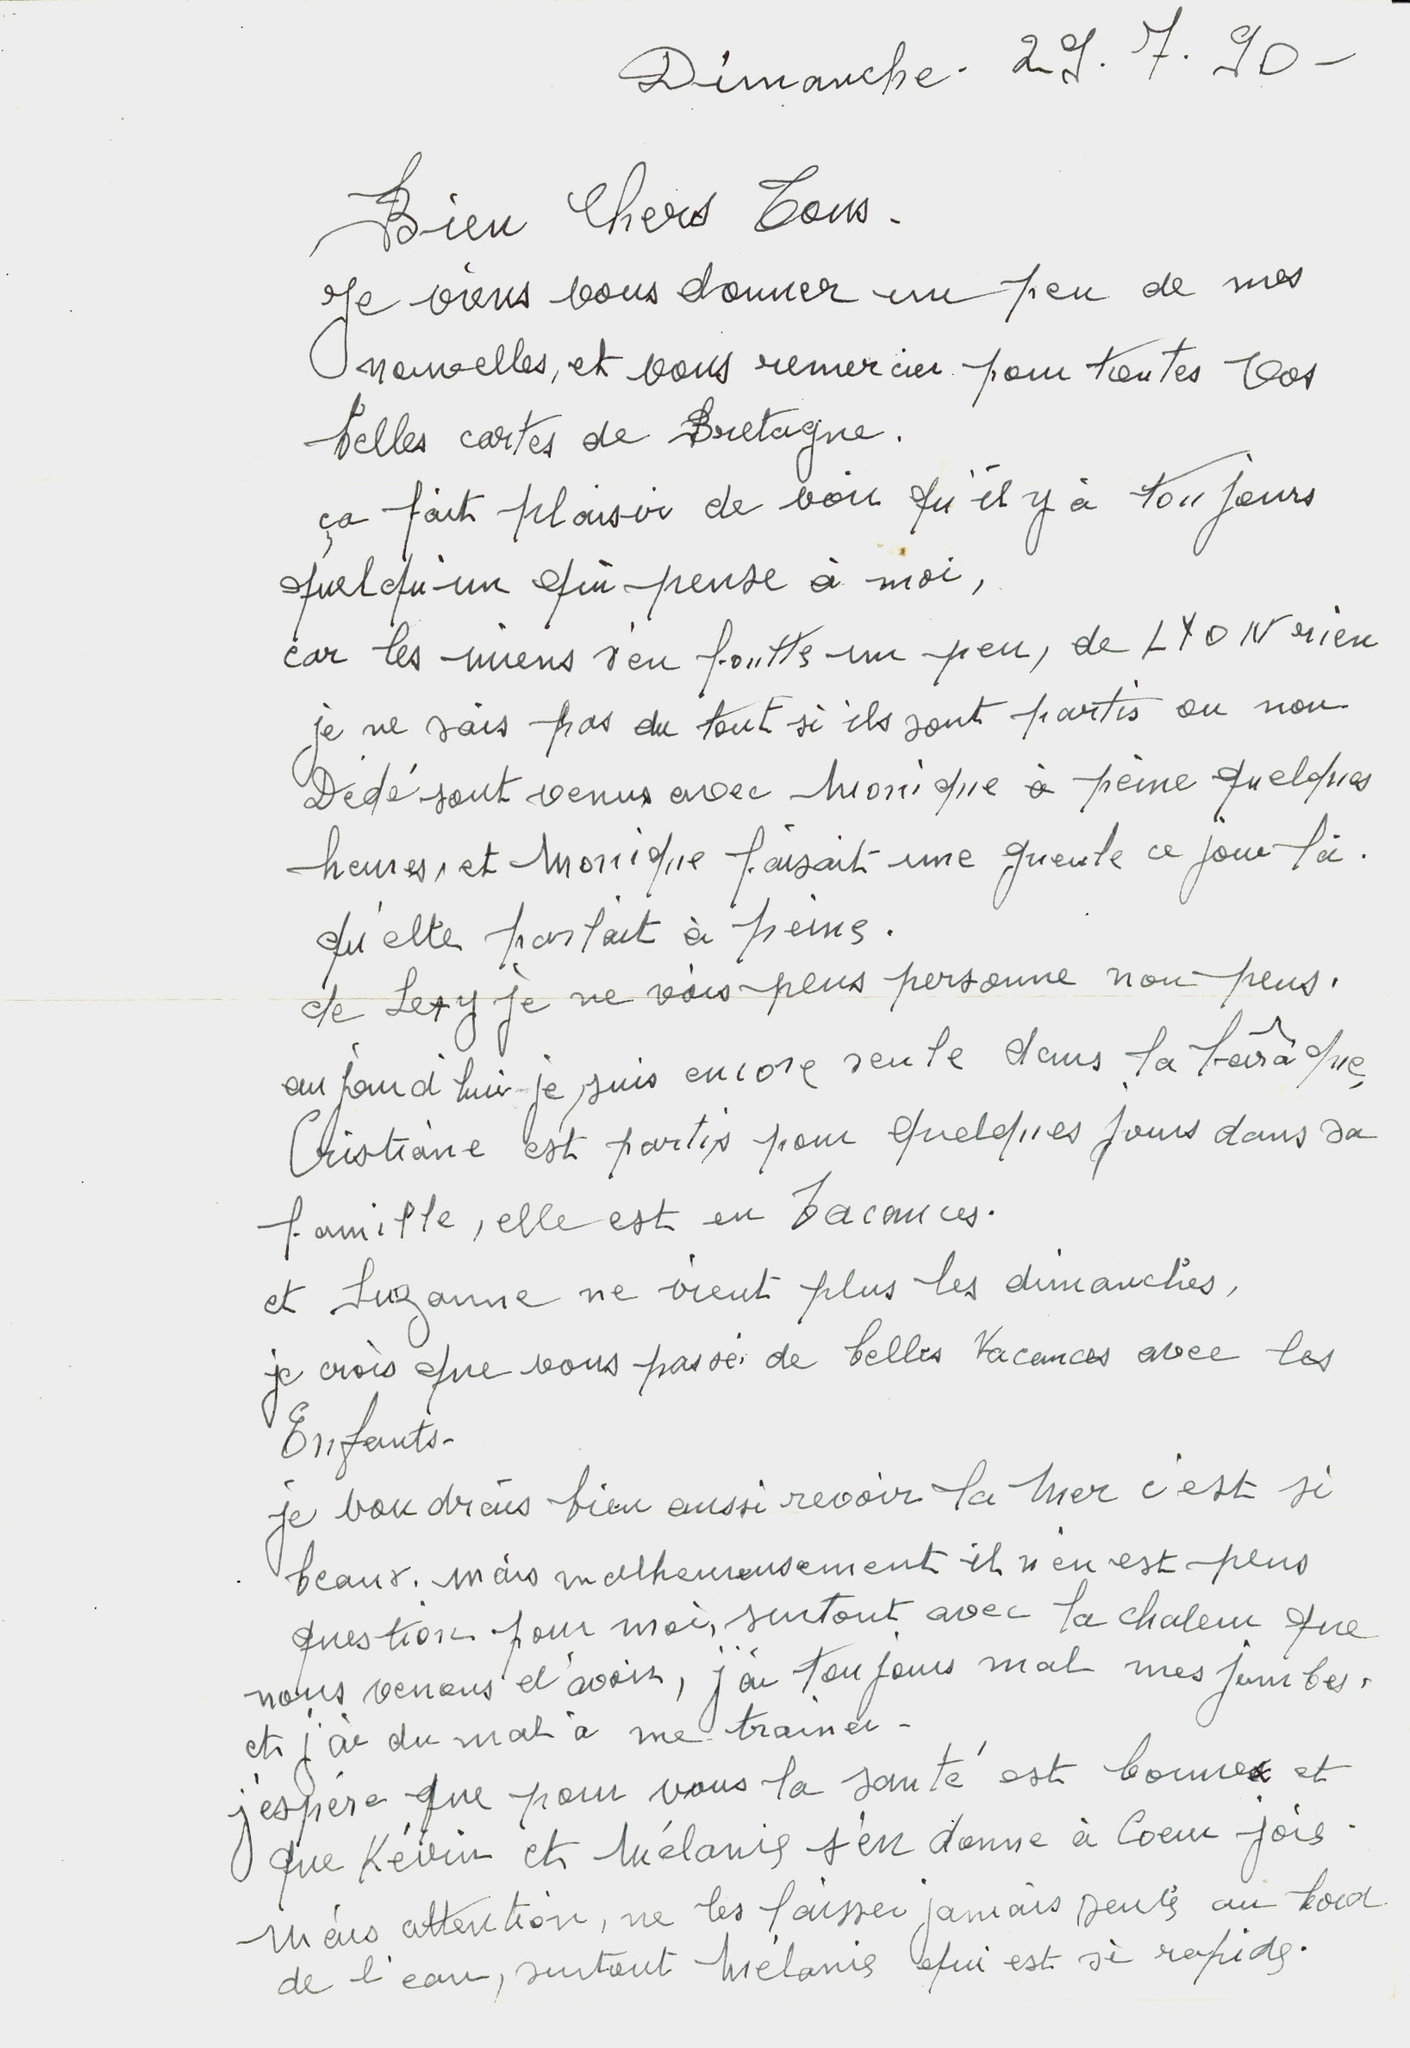 Dimanche. 29. 7. 90 -
Bien Chers Tous.
Je viens vous donner un peu de mes
nouvelles, et vous remercier pour toutes Vos
belles cartes de Bretagne.
ça fait plaisir de voir qu'il y à toujours
quelqu'un qui pense à moi,
car les miens s'en foutte un peu, de LYON rien
je ne sais pas du tout si ils sont partis ou non
Dédé sont venus avec Monique à peine quelques
heures, et Monique faisait une gueule ce jour là.
qu'elle parlait à peine.
de Lexy je ne vois plus personne non plus.
aujourd'hui je suis encore seule dans la barâque,
Cristiane est partis pour quelques jours dans sa
famille, elle est en Vacances.
et Suzanne ne vient plus les dimanches,
je crois que vous passé de belles Vacances avec les
Enfants-
je voudrais bien aussi revoir la Mer c'est si
beaux. mais malheureusement il n'en est plus
question pour moi, surtout avec la chaleur que
nous venons d'avoir, j'ai toujours mal mes jambes.
et j'ai du mal à me trainer -
j'espère que pour vous la santé est bonne et
que Kévin et Mélanie s'en donne à Coeur joie.
Mais attention, ne les laisser jamais seuls au bord
de l'eau, surtout Mélanie qui est si rapide.